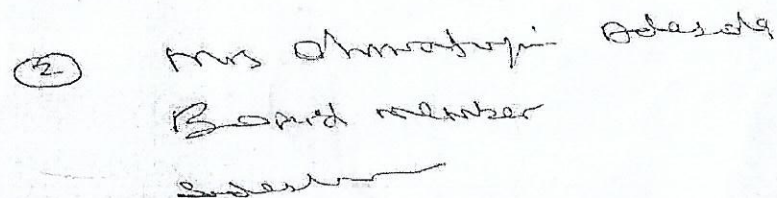 ② Mrs Oluwatoyin Adesola
Board member